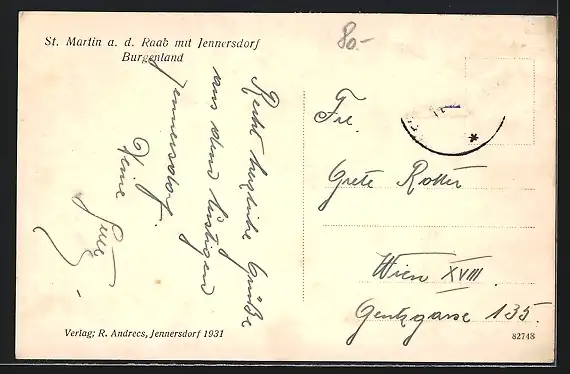 St. Martin a. d. Raab mit Jennersdorf
Burgenland
80.-
Recht herzliche Grüße
aus dem lustigen
Jennersdorf.
Deine
Frl.
Grete Rotter
Wien XVIII
Gentzgasse 135.
Verlag: R. Andrees, Jennersdorf 1931
82748